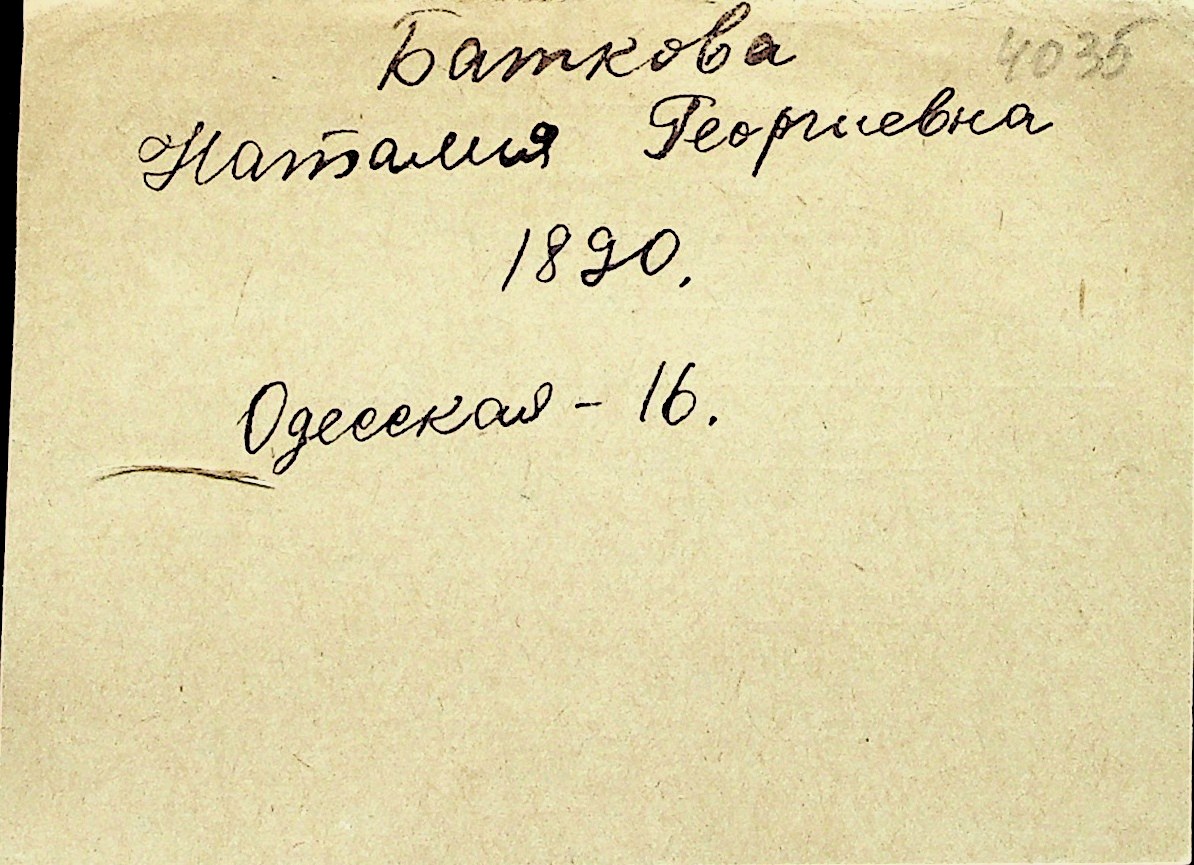 Баткова 4035
Наталия Георгиевна
1890.
Одесская - 16.